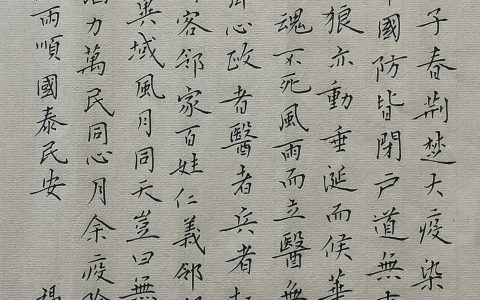 子春荆楚大疫染
國防皆閉戶道無
狼亦動垂涎而候華
魂不死風雨而立醫無
心政者醫者兵者
客邻家百娃仁義邻
異域風月同天豈曰無
力萬民同心月余疫
雨順國泰民安